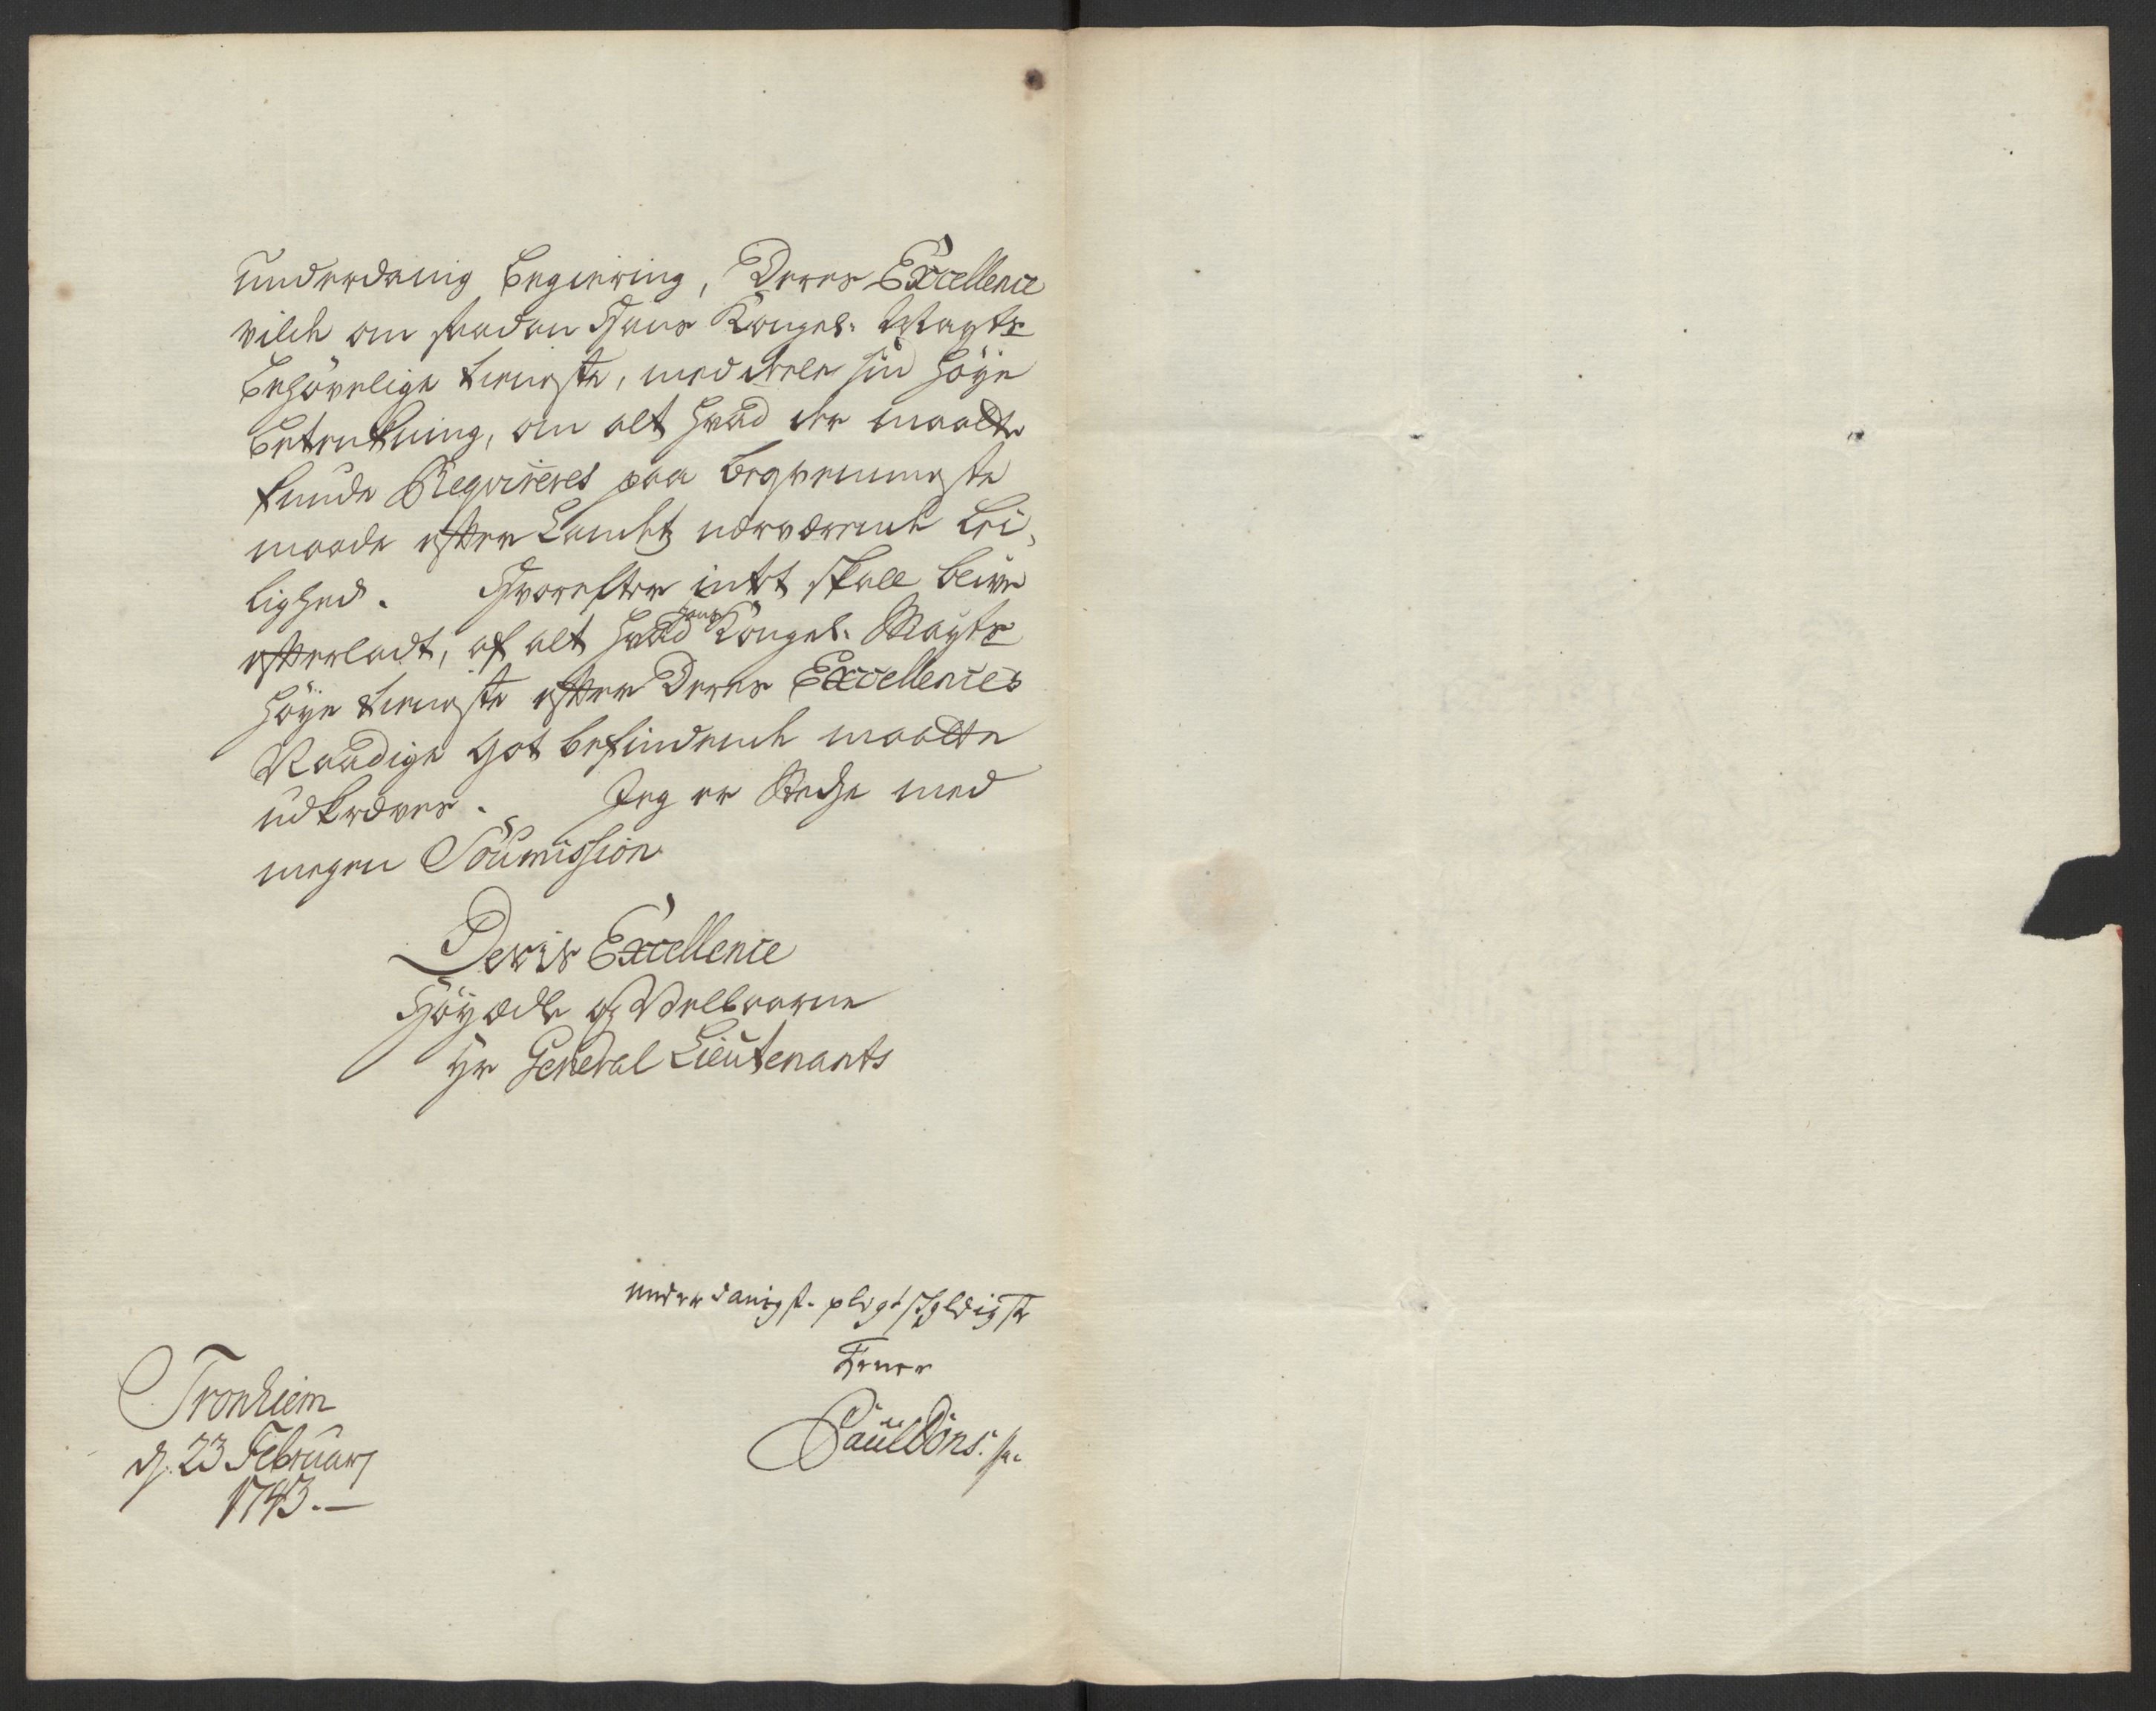 underdanig begiering, Deres Excellence
vilde om saadan Hans Kongel. Mayts
behøvelige tieneste, meddeele sin høye
betenkning, om alt hvad der maatte
kunde Requireres paa beqvemmeste
maade efter Landets nærværende Lei,
lighed. Hvorefter intet skall blive
efterladt, af alt hvad hans Kongel. Mayts
høye tieneste efter Deres Excellences
Naadige Got befindende maatte
udkræves. Jeg er stedse med
megen Soumission
Deris Excellence
Høyædle og Velbaarne
Hr General Lieutenants
underdanigst. pligtskyldigste
tiener
Paul Döns.
Tronhiem
d. 23 Februarj
1743.-